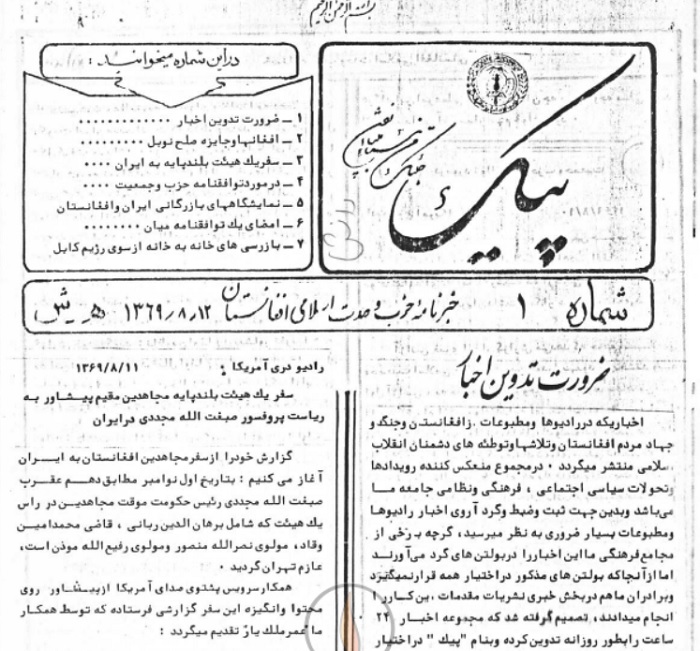 بسم الله الرحمن الرحیم
پیک
شماره ۱ خبرنامه حزب وحدت اسلامی افغانستان ۱۳۶۹/۸/۱۲ هـ ش
دراین شماره میخوانید :
۱ ــ ضرورت تدوین اخبار ............
۲ ــ افغانهاوجایزه صلح نوبل .........
۳ ــ سفریك هیئت بلندپایه به ایران ....
۴ ــ درموردتوافقنامه حزب وجمعیت ....
۵ ــ نمایشگاههای بازرگانی ایران وافغانستان
۶ ــ امضای یك توافقنامه میان ........
۷ ــ بازرسی های خانه به خانه ازسوی رژیم کابل
ضرورت تدوین اخبار
اخباریکه دررادیوها ومطبوعات ازافغانستان وجنگ و
جهاد مردم افغانستان وتلاشهاوتوطئه های دشمنان انقلاب
اسلامی منتشر میگردد ۰ درمجموع منعکس کننده رویدادها
وتحولات سیاسی اجتماعی ، فرهنگی ونظامی جامعه مــا
میباشد وبدین جهت ثبت وضبط وگرد آروی اخبار رادیوها
ومطبوعات بسیار ضروری به نظر میرسید، گرچه بــرخی از
مجامع فرهنگی مااین اخباررا دربولتن های گرد می آورنـد
اما ازآنجاکه بولتن های مذکور دراختیار همه قرارنمیگیرد
وبرادران ماهم دربخش خبری نشریات مقدمات این کــار را
انجام میدادند، تصمیم گرفته شد که مجموعه اخبــار ۲۴
ساعت رابطور روزانه تدوین کرده وبنام "پیك " دراختیار
رادیو دری آمریکا : ۱۳۶۹/۸/۱۱
سفر یك هیئت بلندپایه مجاهدین مقیم پیشاور به
ریاست پروفسور صبغت الله مجددی درایران
گزارش خودرا ازسفر مجاهدین افغانستان به ایــران
آغاز می کنیم : بتاریخ اول نوامبر مطابق دهــم عقــرب
صبغت الله مجددی رئیس حکومت موقت مجاهدیــن در راس
یك هیئت که شامل برهان الدین ربانی ، قاضی محمدامیــن
وقاد، مولوی نصرالله منصور ومولوی رفیع الله موذن است،
عازم تهران گردید ۰
همکار سرویس پشتوی صدای آمریکا ازپیشــاور روی
محتوا وانگیزه این سفر گزارشی فرستاده که توسط همکار
ما عمر ملك یار تقدیم میگردد :